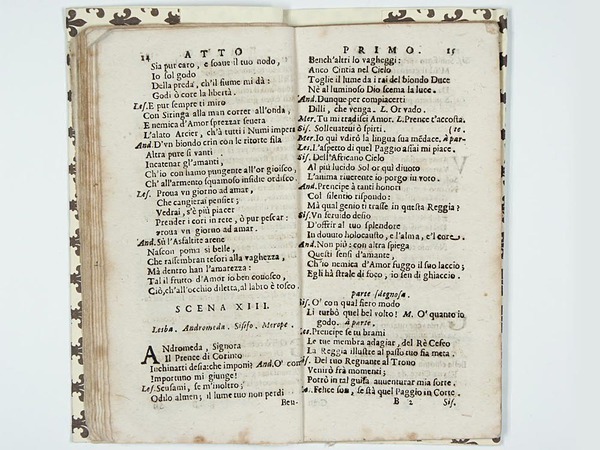 14 ATTO
Sia pur caro, e soaue il tuo nodo,
Io sol godo
Della preda, ch'il fiume mi dà:
Godi ò core la libertà.
Les. E pur sempre ti miro
Con Siringa alla man correr all'onda,
E nemica d'Amor sprezzar seuera
L'alato Arcier, ch'à tutti i Numi impera
And. D'vn biondo crin con le ritorte fila
Altra pure si vanti
Incatenar gl'amanti,
Ch'io con hamo pungente all'or gioisco,
Ch'all'armento squamoso insidie ordisco.
Les. Proua vn giorno ad amar,
Che cangierai pensier;
Vedrai, s'è più piacer
Prender i cori in rete, ò pur pescar:
Proua vn giorno ad amar.
And. Sù l'Asfaltite arene
Nascon poma sì belle,
Che rassembran tesori alla vaghezza,
Mà dentro han l'amarezza:
Tal il frutto d'Amor io ben conosco,
Ciò, ch'all'occhio diletta, al labro è tosco.
SCENA XIII.
Lesba. Andromeda. Sisifo. Merope.
ANdromeda, Signora
Il Prence di Corinto
Inchinarti desia: che imponi? And. O' com
Importuno mi giunge!
Les. Scusami, se m'inoltro;
Odilo almen; il lume tuo non perdi
Ben-
PRIMO. 15
Bench'altri lo vagheggi:
Anco Cintia nel Cielo
Toglie il lume da i rai del biondo Duce
Nè al luminoso Dio scema la luce.
And. Dunque per compiacerti
Dilli, che venga. L. Or vado.
Mer. Tu mi tradisci Amor. L. Prence t'accosta.
Sis. Solleuateui ò spirti. (te.
Mer. Io qui vdirò la lingua sua mẽdace. à par-
Les. L'aspetto di quel Paggio assai mi piace.
Sis. Dell'Africano Cielo
Al più lucido Sol or quì diuoto
L'anima riuerente io porgo in voto.
And. Prencipe à tanti honori
Col silentio rispondo:
Mà qual genio ti trasse in questa Reggia?
Sis. Vn feruido desio
D'offrir al tuo splendore
In douuto holocausto, e l'alma, e'l core.
And. Non più: con altra spiega
Questi sensi d'amante,
Ch'io nemica d'Amor fuggo il suo laccio;
Egli hà strale di foco, io sen di ghiaccio.
parte sdegnosa.
Sis. O' con qual fiero modo
Li turbò quel bel volto! M. O' quanto io
godo. à parte.
Les. Prencipe se tu brami
Le tue membra adagiar, del Rè Cefeo
La Reggia illustre al passo tuo fia meta.
Sis. Del tuo Regnante al Trono
Venirò frà momenti;
Potrò in tal guisa auuenturar mia sorte.
Les. Felice son, se stà quel Paggio in Corte.
B 2 Sis.